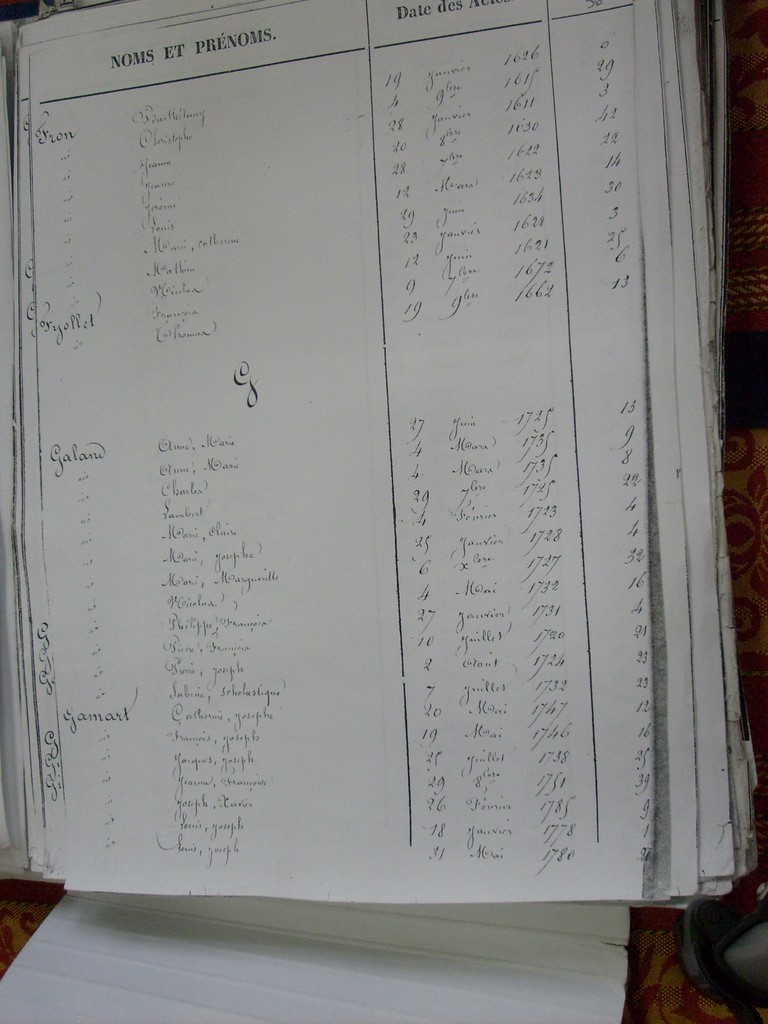 NOMS ET PRÉNOMS. Date des Actes.
Fron Barthélemy 19 Janvier 1626 6
" Christophe 4 9bre 1615 29
" Jeanne 28 Janvier 1611 3
" Jeanne 20 8bre 1630 42
" Jérôme 28 7bre 1622 22
" Louis 12 Mars 1623 14
" Marie, catherine 29 Juin 1634 30
" Mathieu 23 Janvier 1628 3
" Nicolas 12 Juin 1621 25
Fryollet François 9 7bre 1672 6
" Thomas 19 9bre 1662 13
G
Galand Anne, Marie 27 Juin 1725 13
" Anne, Marie 4 Mars 1735 9
" Charles 4 Mars 1735 8
" Lambert 29 7bre 1725 22
" Marie, Claire 4 Février 1723 4
" Marie, josephe 25 Janvier 1728 4
" Marie, Marguerite 6 Xbre 1727 32
" Nicolas 4 Mai 1732 16
" Philippe, François 27 Janvier 1731 4
" Pierre, François 10 Juillet 1720 21
" Pierre, joseph 2 Août 1724 23
" Sabine, scholastique 7 Juillet 1732 23
Gamart Catherine, josephe 20 Mai 1747 12
" François, joseph 19 Mai 1746 16
" Jacques, joseph 25 Juillet 1738 25
" Jeanne, Françoise 29 8bre 1751 39
" Joseph, Xavier 26 Février 1785 9
" Louis, joseph 18 Janvier 1778 1
" Louis, joseph 31 Mai 1780 20